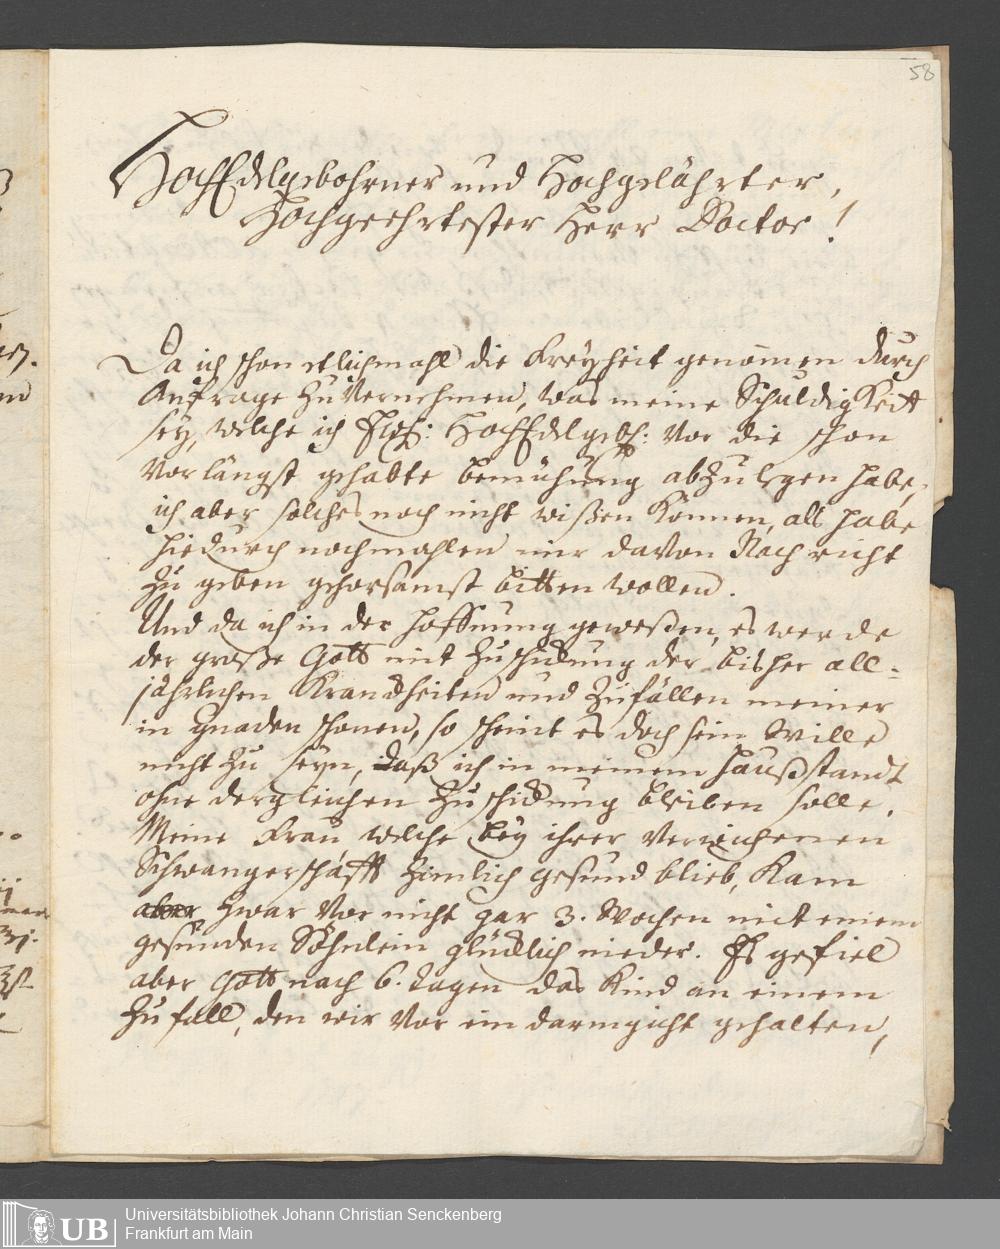 58
HochEdelgebohrner und Hochgelährter,
Hochgeehrtester Herr Doctor!
Da ich schon etlichmahl die Freyheit genommen durch
Anfrage zu Vernehmen, was meine Schuldigkeit
sey, welche ich HochEdelgeb: Vor die schon
Vorlängst gehabte bemühung abzulegen habe,
ich aber solches noch nicht wißen können, als habe
hiedurch nochmahlen mir davon Nachricht
zu geben gehorsamst bitten wollen.
Und da ich in der Hoffnung geweßen, es werde
der große Gott mit Zuschickung der bisher all-
jährlichen Kranckheiten und Zufällen meiner
in Gnaden schonen, so scheint es doch sein Wille
nicht zu seyn, daß ich in meinem Haußstandt
ohne dergleichen Zuschickung bleiben solle.
Meine Frau, welche bey ihrer Verwichenen
Schwangerschafft Zimlich gesund blieb, Kam
aber zwar Vor nicht gar 3. Wochen mit einem
gesunden Söhnlein glücklich nieder. Es gefiel
aber Gott nach 6. tagen das Kind an einem
Zufall, den wir Vor ein darmgicht gehalten,
UB
Universitätsbibliothek Johann Christian Senckenberg
Frankfurt am Main